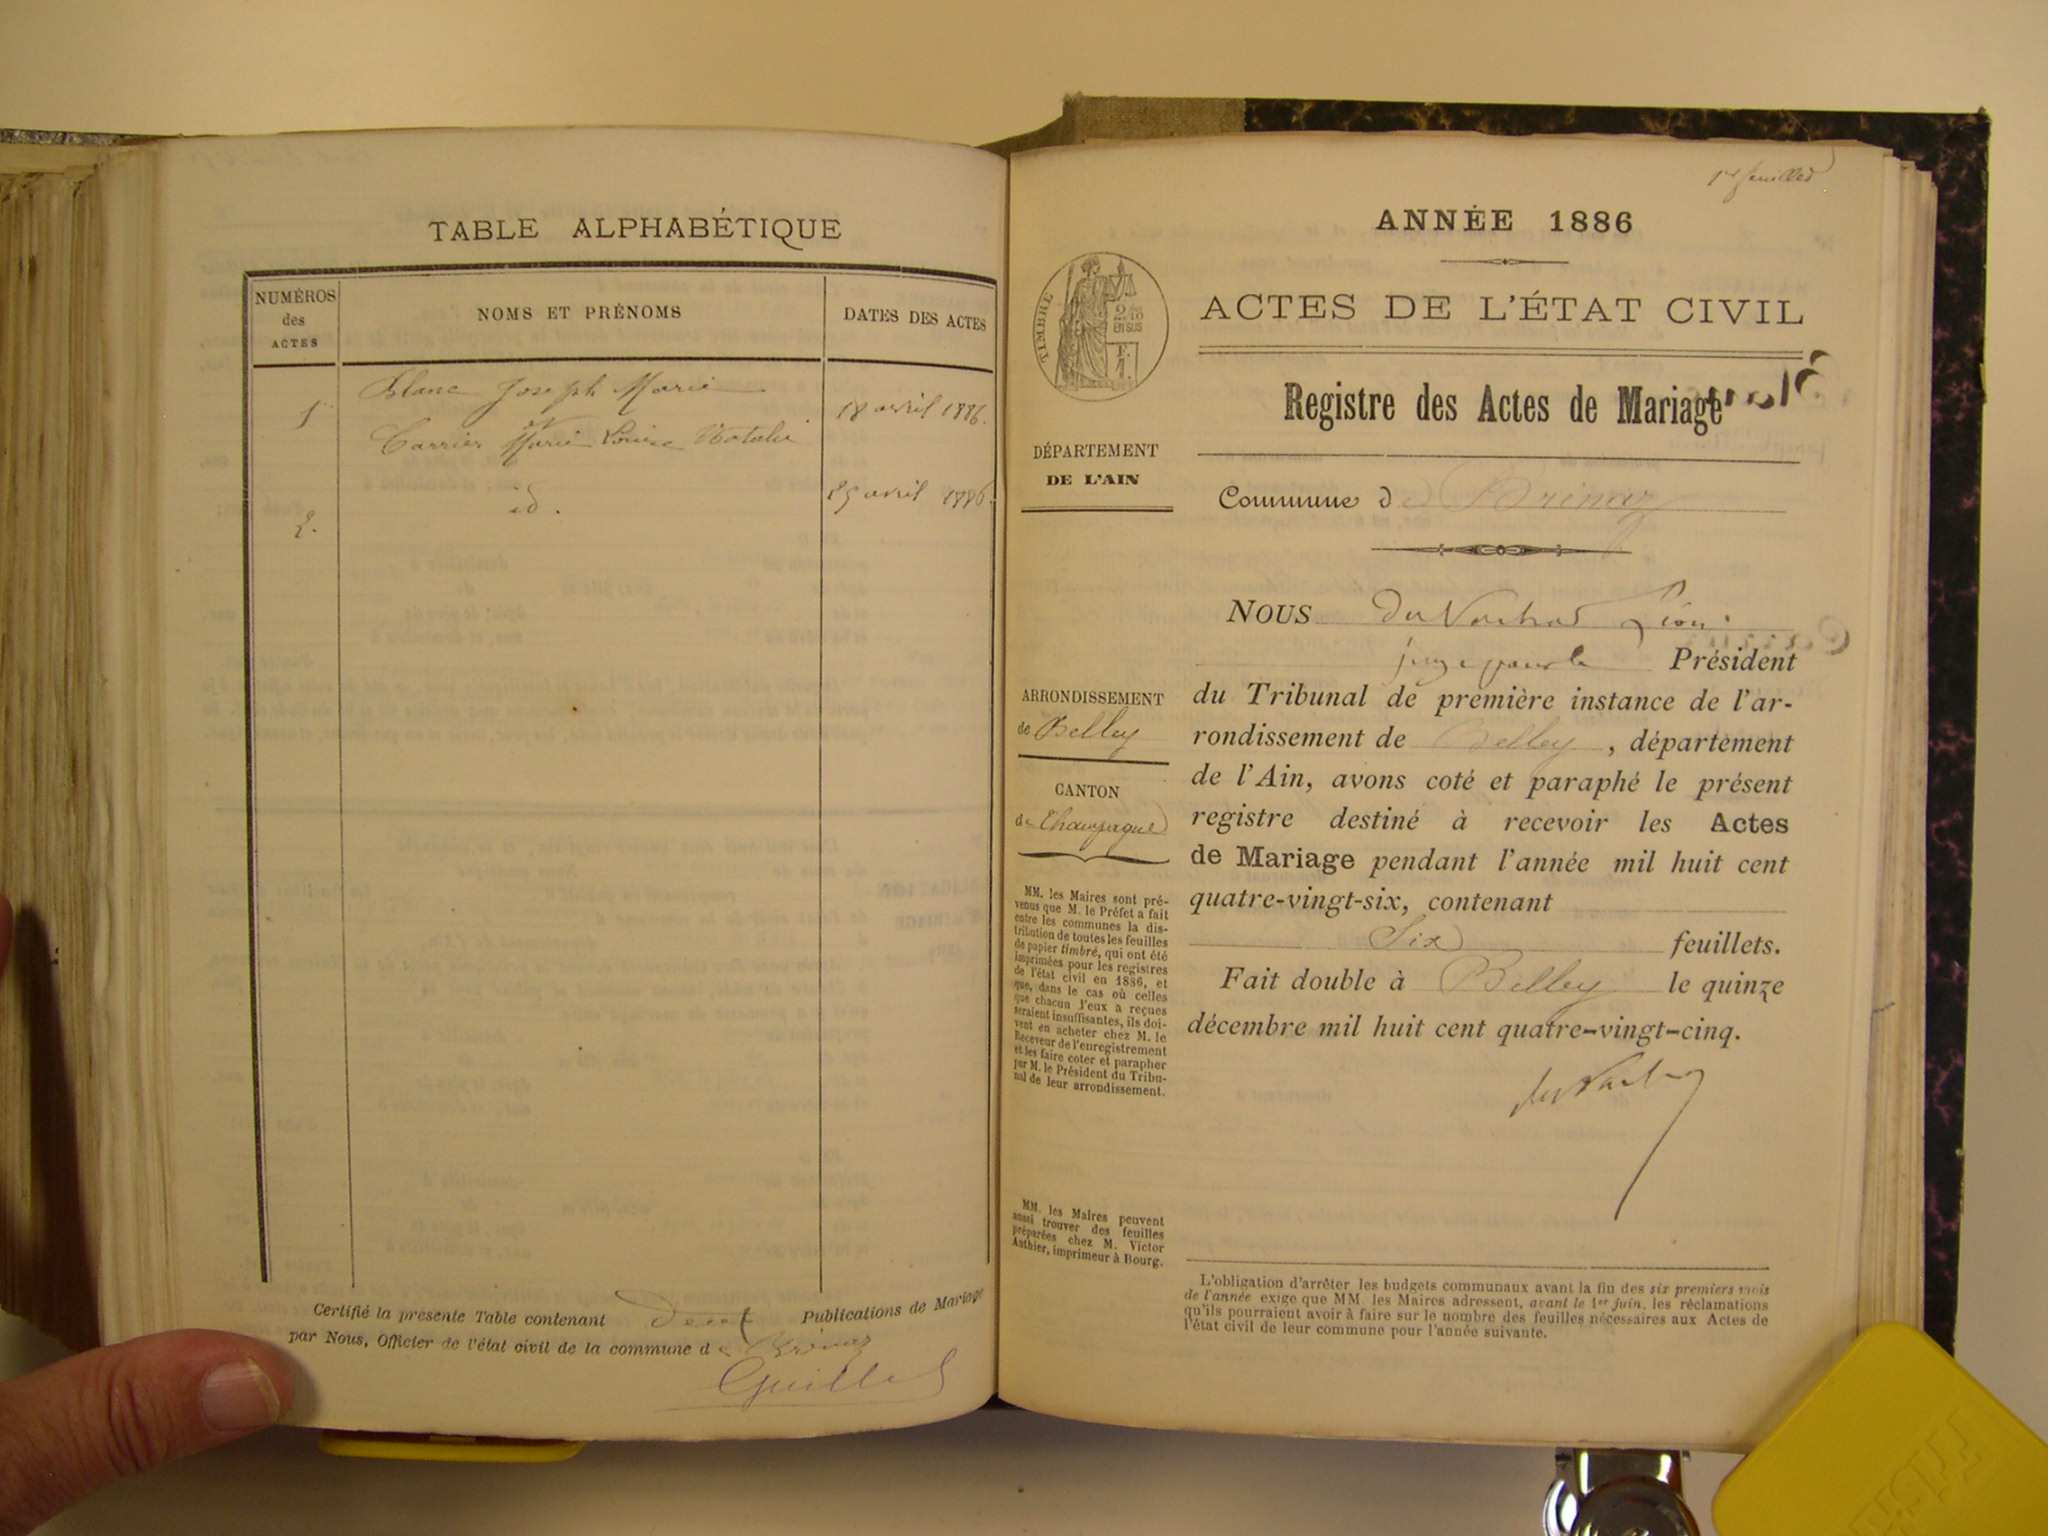 TABLE ALPHABÉTIQUE
NUMÉROS
des
ACTES
NOMS ET PRÉNOMS
DATES DES ACTES
1
Blanc Joseph Marie
et
Carrier Marie Louise Natalie
18 avril 1886.
2.
id.
25 avril 1886.
Certifié la présente Table contenant deux Publications de Mariage
par Nous, Officier de l'état civil de la commune de Brénaz
Guillet
1er feuillet
ANNÉE 1886
TIMBRE
2/10
EN SUS
F.
1.
ACTES DE L'ÉTAT CIVIL
Registre des Actes de Mariage
DÉPARTEMENT
DE L'AIN
Commune de Brénaz
NOUS
Léon
juge pour le Président
du Tribunal de première instance de l'ar-
rondissement de Belley, département
de l'Ain, avons coté et paraphé le présent
registre destiné à recevoir les Actes
de Mariage pendant l'année mil huit cent
quatre-vingt-six, contenant
Six feuillets.
Fait double à Belley le quinze
décembre mil huit cent quatre-vingt-cinq.
ARRONDISSEMENT
de Belley
CANTON
de Champagne
MM. les Maires sont pré-
venus que M. le Préfet a fait
entre les communes la dis-
tribution de toutes les feuilles
de papier timbré, qui ont été
imprimées pour les registres
de l'état civil en 1886, et
que, dans le cas où celles
que chacun d'eux a reçues
seraient insuffisantes, ils doi-
vent en acheter chez M. le
Receveur de l'enregistrement
et les faire coter et parapher
par M. le Président du Tribu-
nal de leur arrondissement.
MM. les Maires peuvent
aussi trouver des feuilles
préparées chez M. Victor
Authier, imprimeur à Bourg.
L'obligation d'arrêter les budgets communaux avant la fin des six premiers mois
de l'année exige que MM. les Maires adressent, avant le 1er juin, les réclamations
qu'ils pourraient avoir à faire sur le nombre des feuilles nécessaires aux Actes de
l'état civil de leur commune pour l'année suivante.